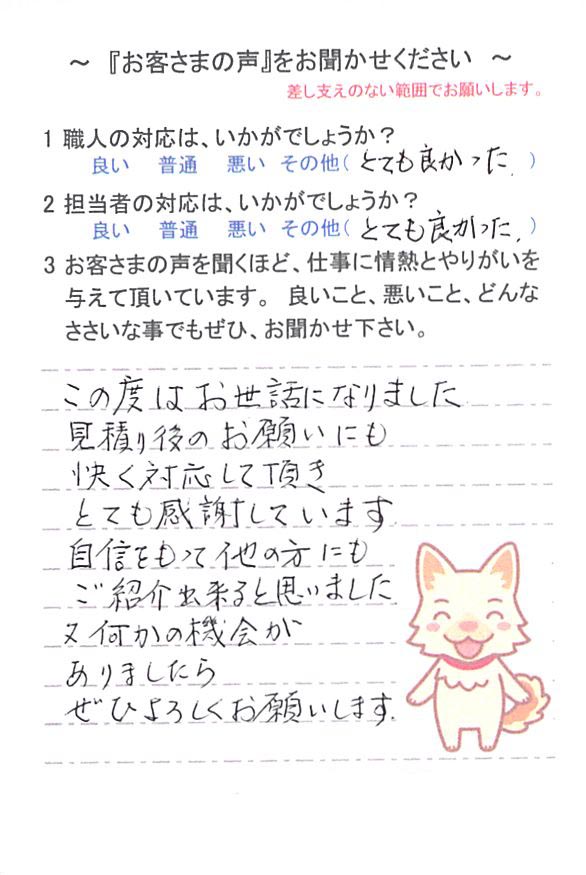 ～ 『お客さまの声』をお聞かせください ～
差し支えのない範囲でお願いします。
1 職人の対応は、いかがでしょうか？
良い 普通 悪い その他( とても良かった. )
2 担当者の対応は、いかがでしょうか？
良い 普通 悪い その他( とても良かった. )
3 お客さまの声を聞くほど、仕事に情熱とやりがいを
与えて頂いています。 良いこと、悪いこと、どんな
ささいな事でもぜひ、お聞かせ下さい。
この度はお世話になりました
見積り後のお願いにも
快く対応して頂き
とても感謝しています
自信をもって他の方にも
ご紹介出来ると思いました
又何かの機会が
ありましたら
ぜひよろしくお願いします.